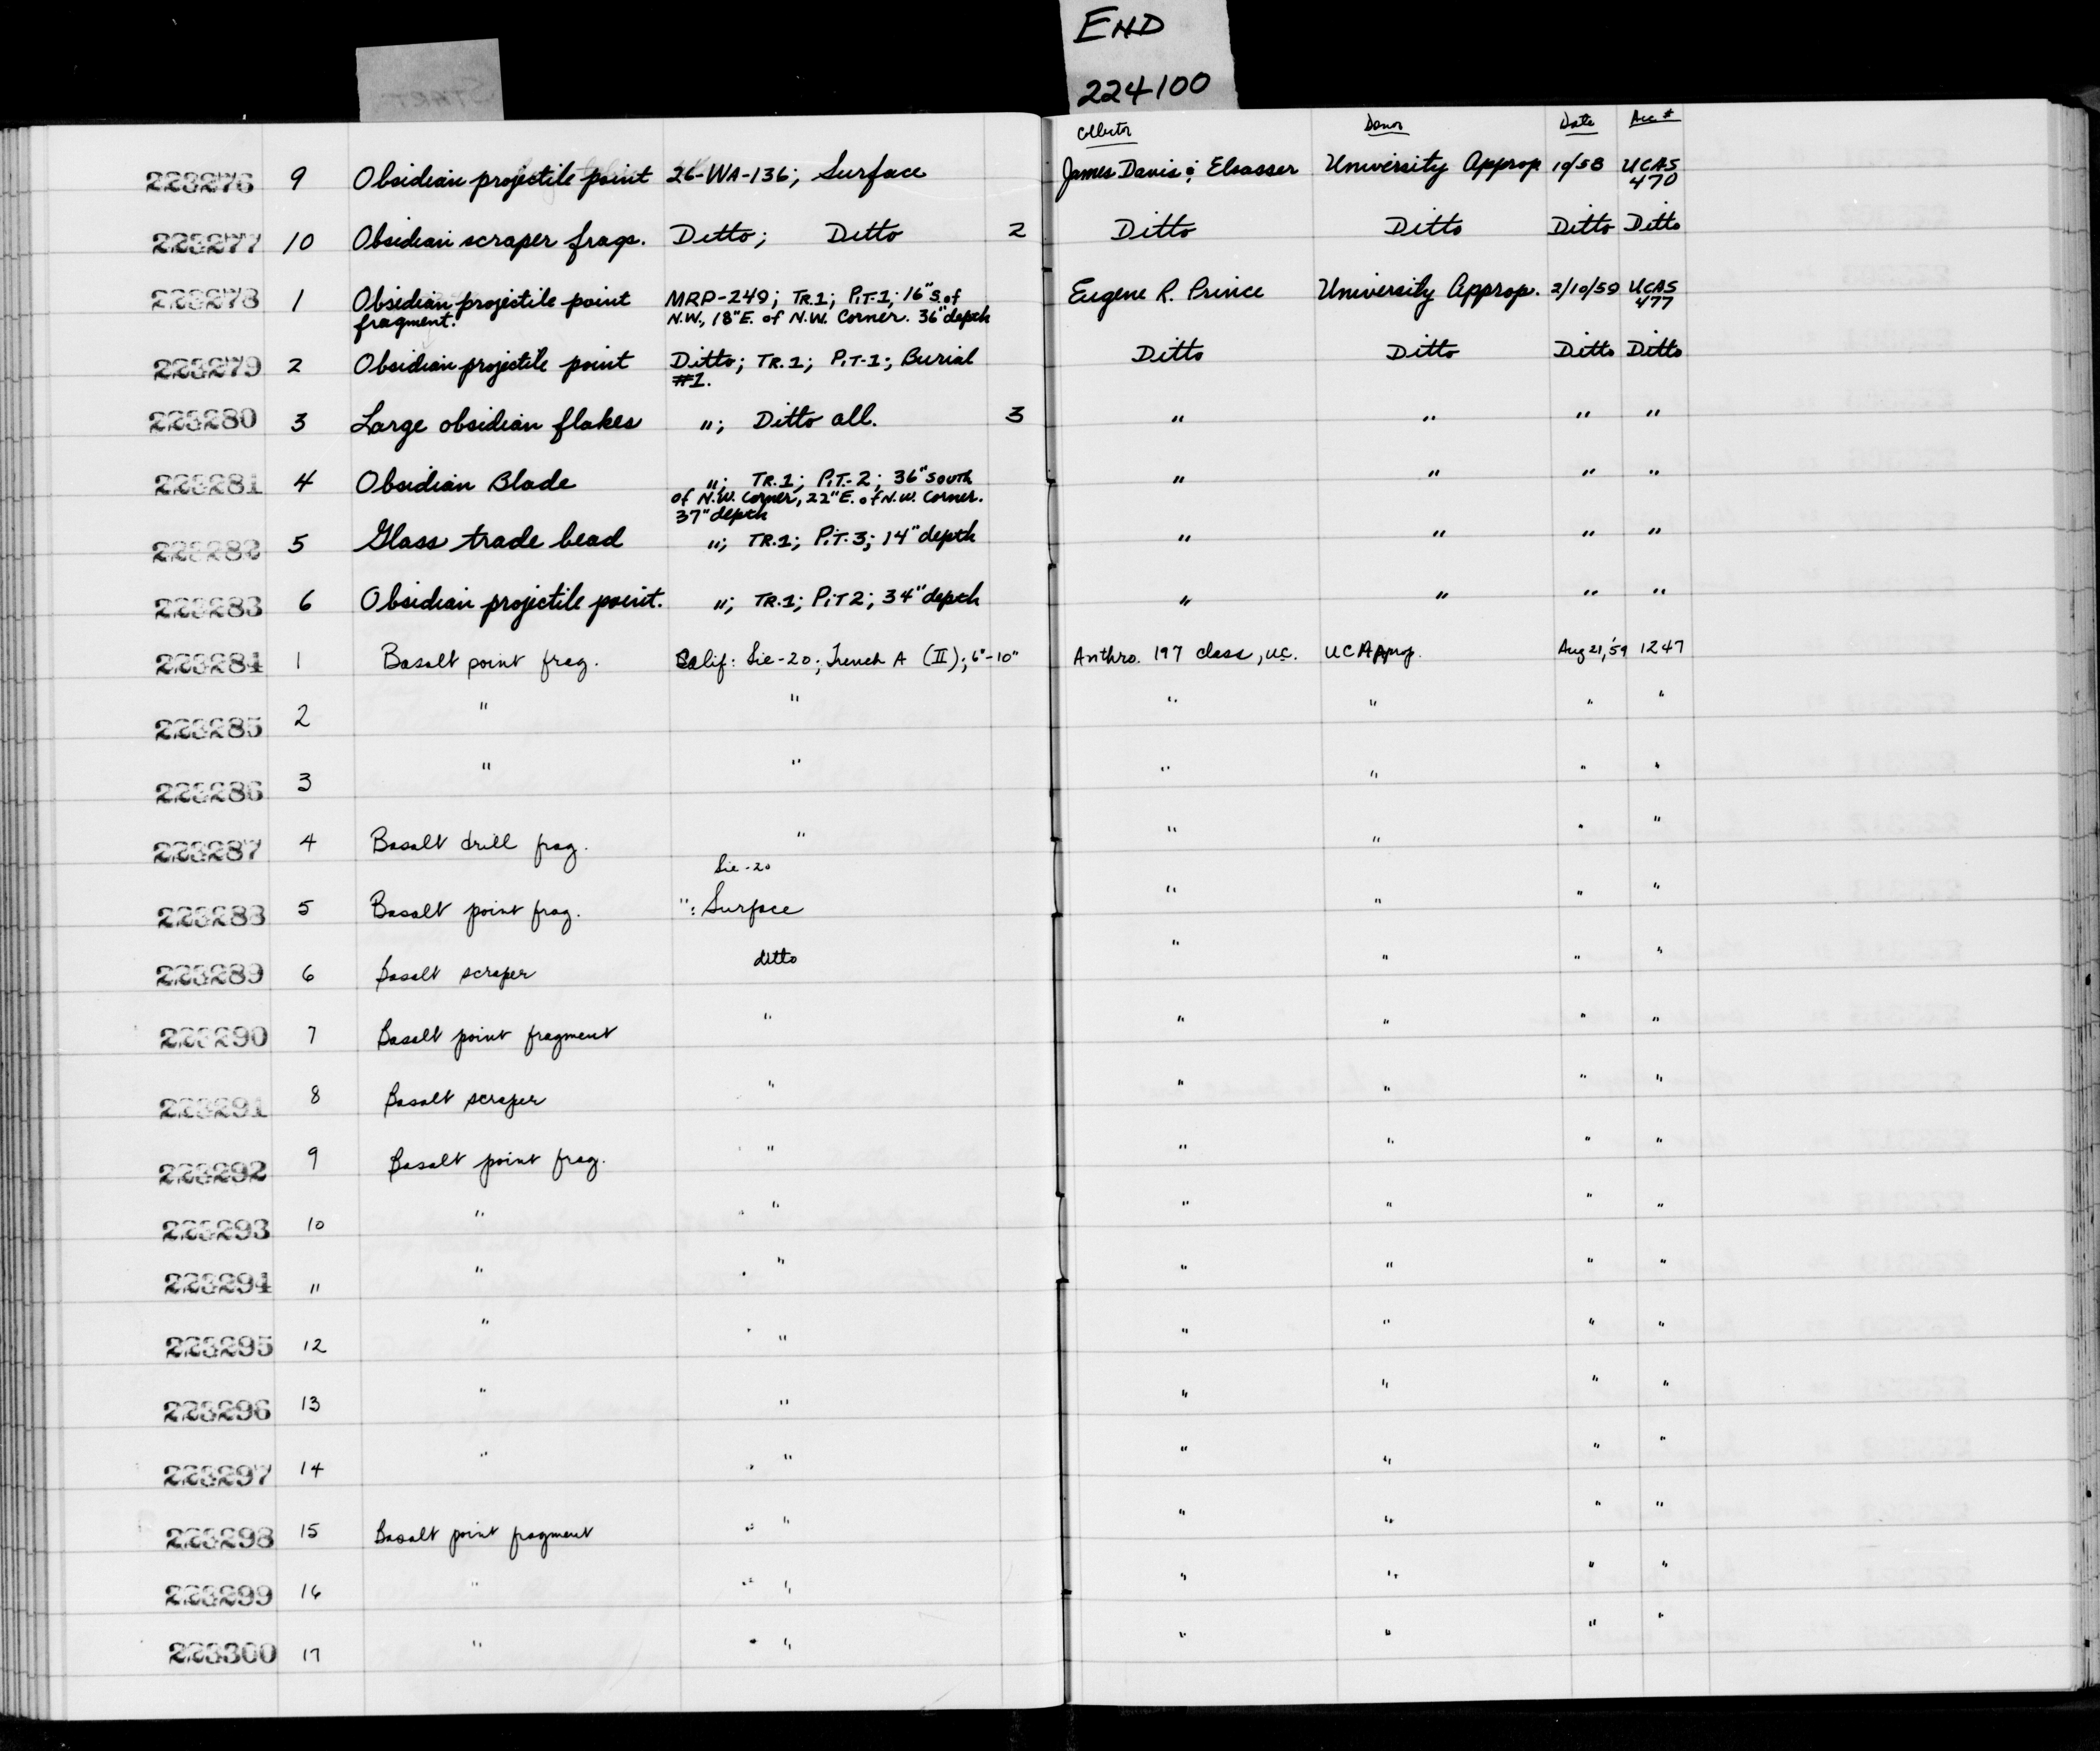 END
224100
START
Collector Donor Date Acc #
223276 9 Obsidian projectile point 26-WA-136; Surface James Davis & Elsasser University Approp. 10/58 UCAS 470
223277 10 Obsidian scraper frags. Ditto; Ditto 2 Ditto Ditto Ditto Ditto
223278 1 Obsidian projectile point MRP-249; TR.1; PiT-1; 16" S. of Eugene R. Prince University Approp. 2/10/59 UCAS 477
fragment. N.W., 18" E. of N.W. Corner. 36" depth
223279 2 Obsidian projectile point Ditto; TR.1; PiT-1; Burial Ditto Ditto Ditto Ditto
#1.
223280 3 Large obsidian flakes "; Ditto all. 3 " " " "
223281 4 Obsidian Blade "; TR.1; PiT-2; 36" south " " " "
of N.W. Corner, 22" E. of N.W. Corner.
37" depth
223282 5 Glass trade bead "; TR.1; PiT-3; 14" depth " " " "
223283 6 Obsidian projectile point. "; TR.1; PiT 2; 34" depth " " " "
223284 1 Basalt point frag. Calif: Sie-20; Trench A (II); 6"-10" Anthro. 197 class, U.C. UC Approp. Aug 21, '59 1247
223285 2 " " " " " "
223286 3 " " " " " "
223287 4 Basalt drill frag. " " " " "
Sie-20
223288 5 Basalt point frag. ": Surface " " " "
223289 6 Basalt scraper ditto " " " "
223290 7 Basalt point fragment " " " " "
223291 8 Basalt scraper " " " " "
223292 9 Basalt point frag. " " " " "
223293 10 " " " " " "
223294 11 " " " " " "
223295 12 " " " " " "
223296 13 " " " " " "
223297 14 " " " " " "
223298 15 Basalt point fragment " " " " " "
223299 16 " " " " " " "
223300 17 " " " " " "